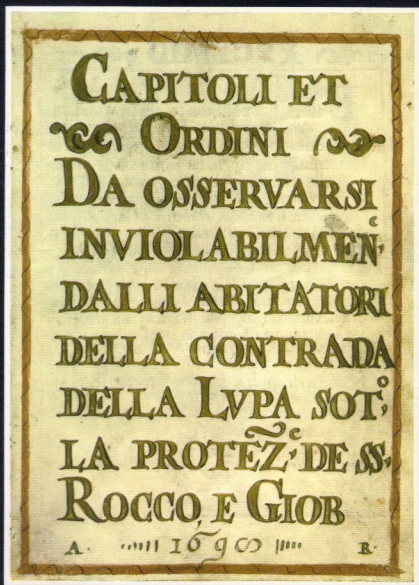 CAPITOLI ET
ORDINI
DA OSSERVARSI
INVIOLABILMEÑ.ᵉ
DALLI ABITATORI
DELLA CONTRADA
DELLA LVPA SOT.ᵒ
LA PROTEZ̃.ᵉ DE SS.
ROCCO, E GIOB
A. 1690 R.